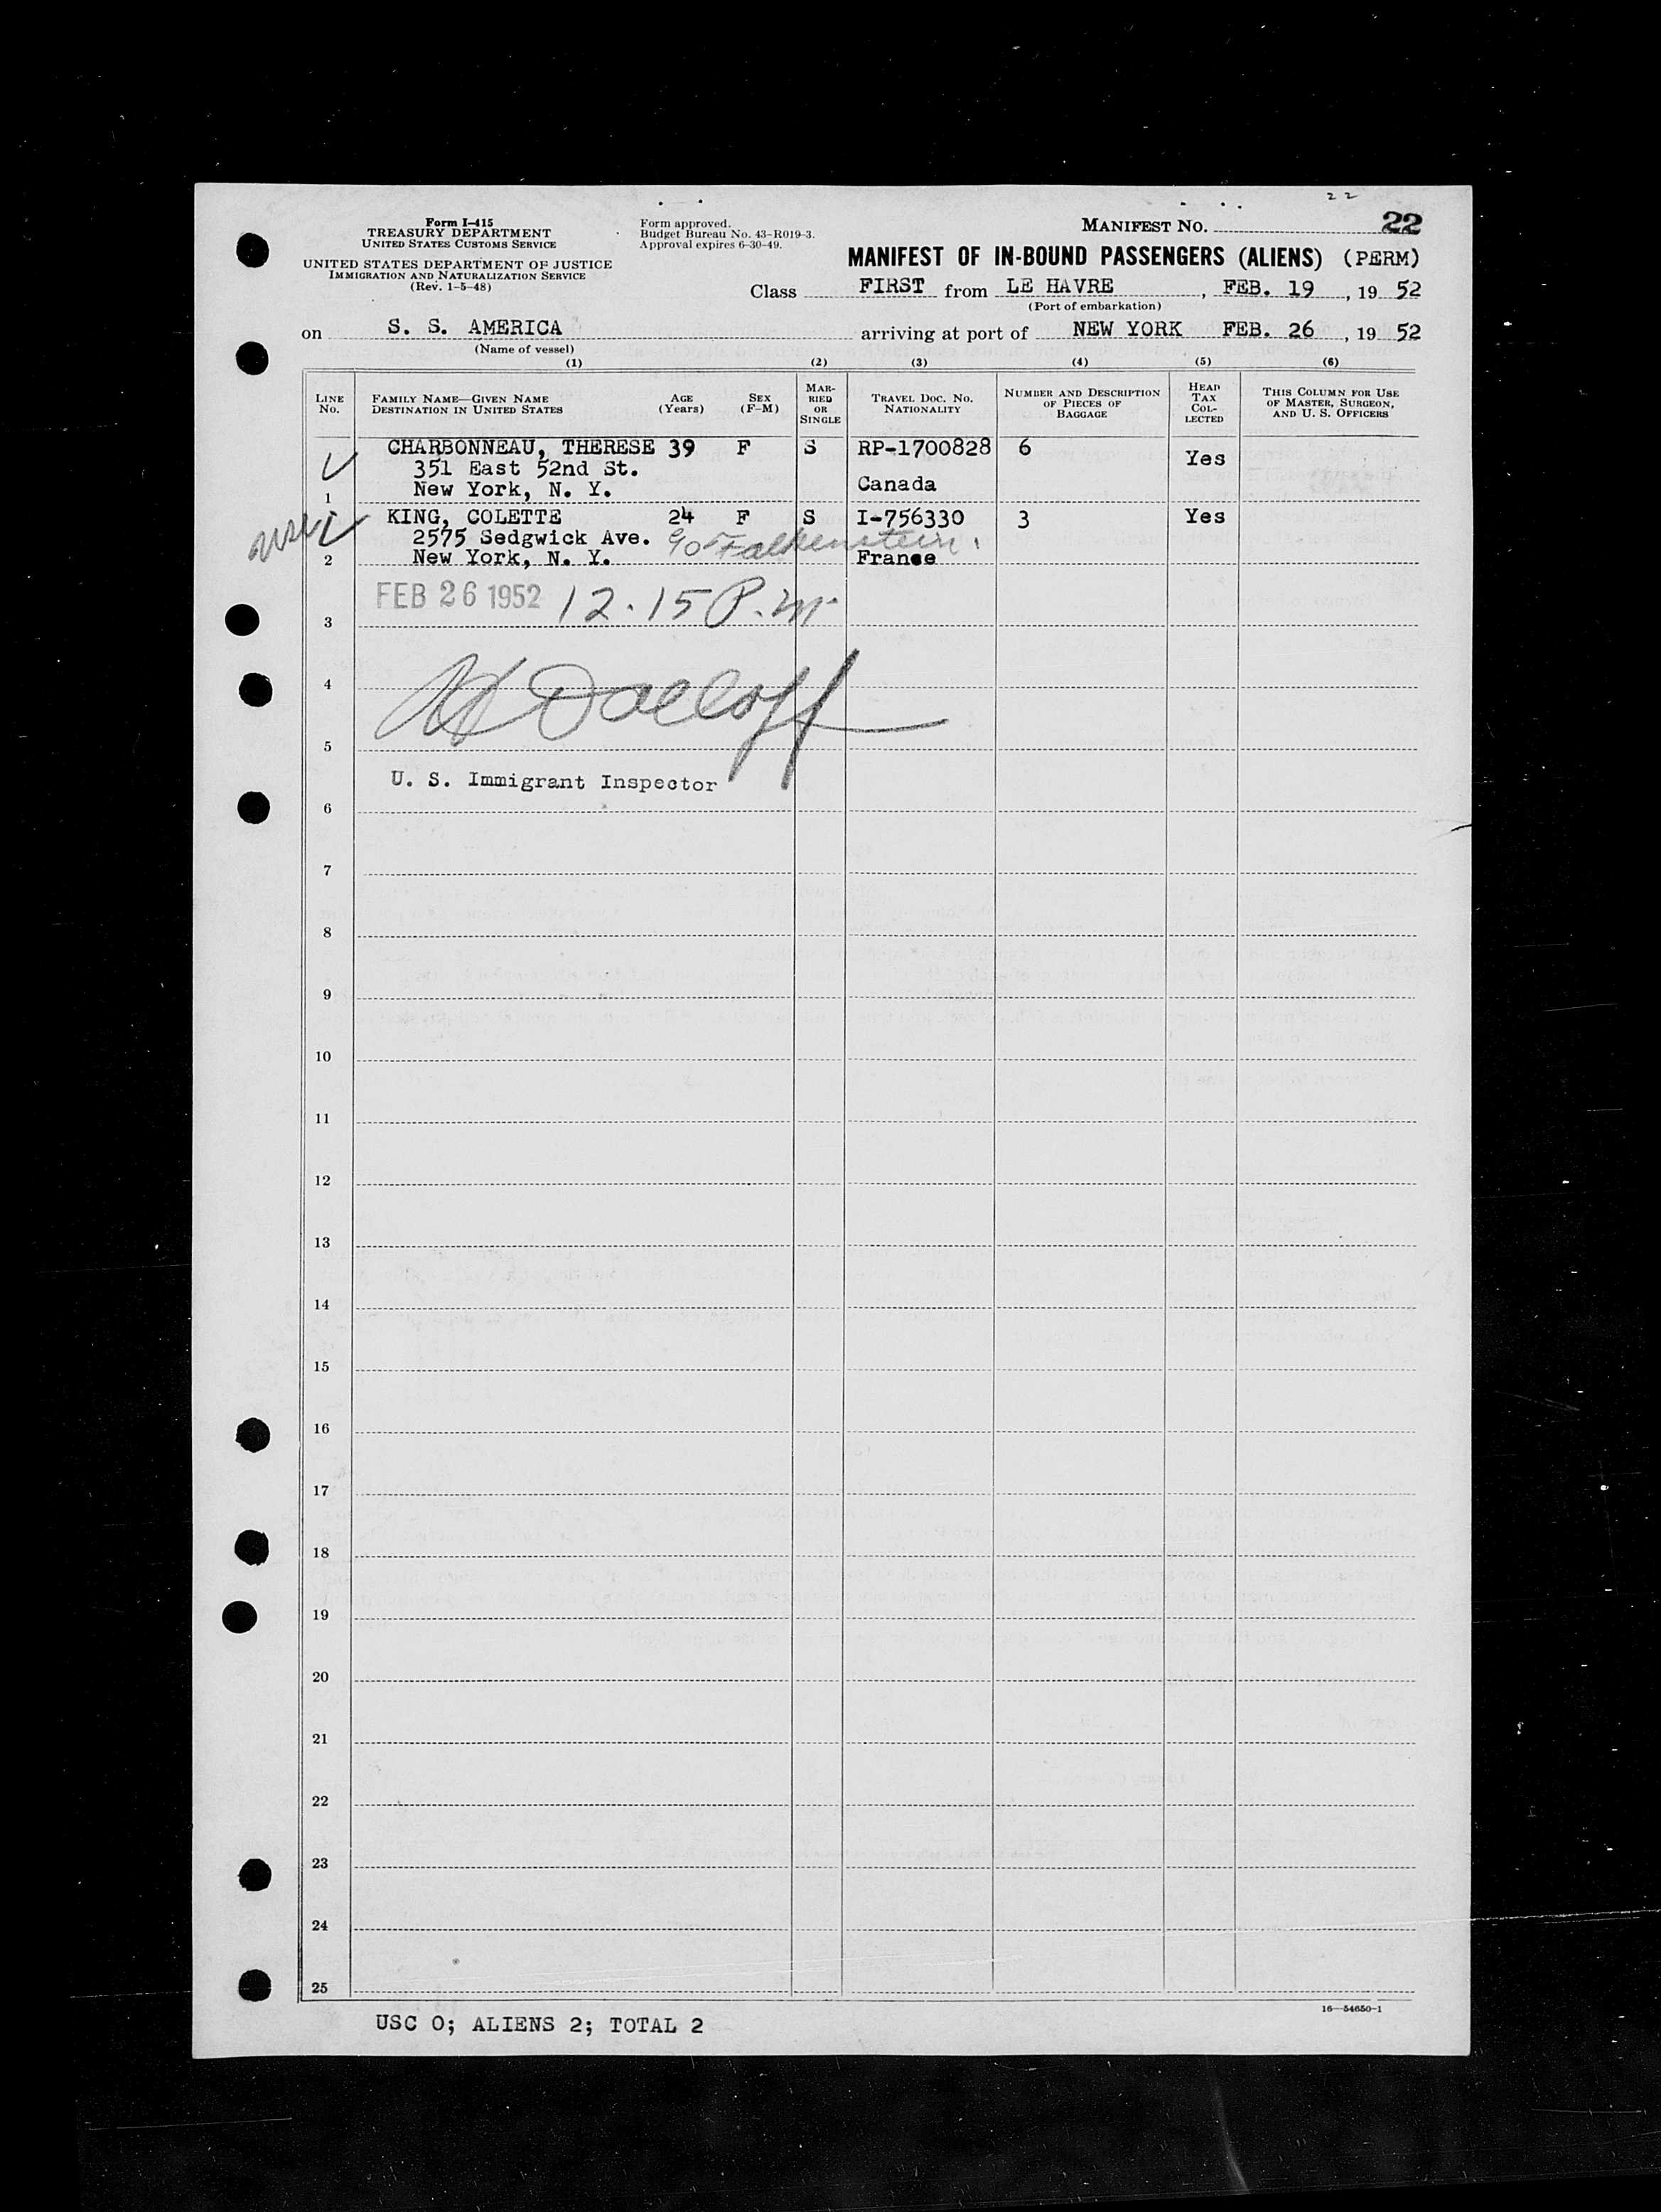 22
Form I-415
TREASURY DEPARTMENT
UNITED STATES CUSTOMS SERVICE
UNITED STATES DEPARTMENT OF JUSTICE
IMMIGRATION AND NATURALIZATION SERVICE
(Rev. 1-5-48)
Form approved.
Budget Bureau No. 43-R019-3.
Approval expires 6-30-49.
MANIFEST NO. 22
MANIFEST OF IN-BOUND PASSENGERS (ALIENS) (PERM)
Class FIRST from LE HAVRE, FEB. 19, 19 52
(Port of embarkation)
on S. S. AMERICA arriving at port of NEW YORK FEB. 26, 19 52
(Name of vessel)
(1) (2) (3) (4) (5) (6)
LINE No. FAMILY NAME—GIVEN NAME DESTINATION IN UNITED STATES AGE (Years) SEX (F-M) MARRIED OR SINGLE TRAVEL DOC. NO. NATIONALITY NUMBER AND DESCRIPTION OF PIECES OF BAGGAGE HEAD TAX COLLECTED THIS COLUMN FOR USE OF MASTER, SURGEON, AND U. S. OFFICERS
CHARBONNEAU, THERESE 39 F S RP-1700828 6 Yes
351 East 52nd St.
1 New York, N. Y. Canada
KING, COLETTE 24 F S I-756330 3 Yes
2575 Sedgwick Ave. c/o Falkenstein.
2 New York, N. Y. France
FEB 26 1952 12.15 P.m.
3
4
5
U. S. Immigrant Inspector
6
7
8
9
10
11
12
13
14
15
16
17
18
19
20
21
22
23
24
25
16—54650-1
USC 0; ALIENS 2; TOTAL 2